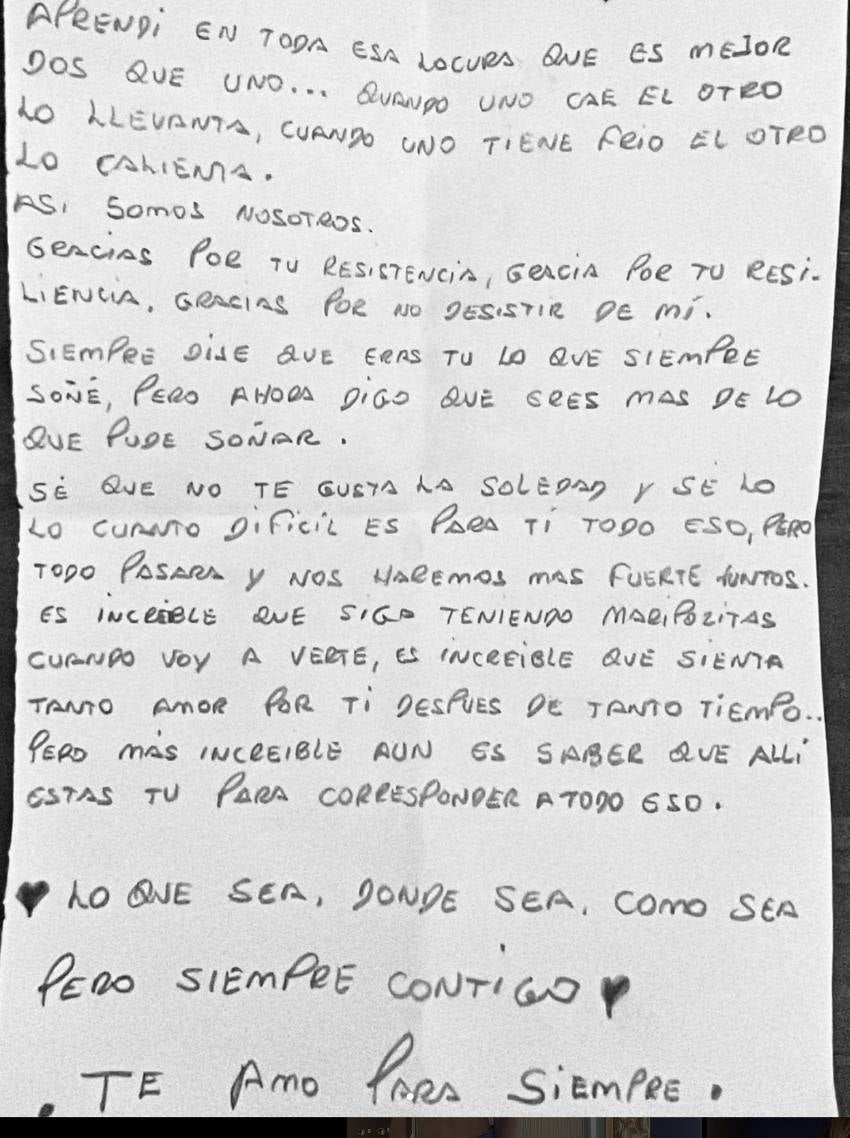 APRENDI EN TODA ESA LOCURA QUE ES MEJOR
DOS QUE UNO... QUANDO UNO CAE EL OTRO
LO LLEVANTA, CUANDO UNO TIENE FRIO EL OTRO
LO CALIENTA.
ASI SOMOS NOSOTROS.
GRACIAS POR TU RESISTENCIA, GRACIA POR TU RESI-
LIENCIA, GRACIAS POR NO DESISTIR DE MÍ.
SIEMPRE DIJE QUE ERAS TU LO QUE SIEMPRE
SOÑÉ, PERO AHORA DIGO QUE ERES MAS DE LO
QUE PUDE SOÑAR.
SÉ QUE NO TE GUSTA LA SOLEDAD Y SÉ LO
LO CUANTO DIFICIL ES PARA TI TODO ESO, PERO
TODO PASARA Y NOS HAREMOS MAS FUERTE JUNTOS.
ES INCREIBLE QUE SIGA TENIENDO MARIPOZITAS
CUANDO VOY A VERTE, ES INCREIBLE QUE SIENTA
TANTO AMOR POR TI DESPUES DE TANTO TIEMPO..
PERO MÁS INCREIBLE AUN ES SABER QUE ALLÍ
ESTAS TU PARA CORRESPONDER A TODO ESO.
♥ LO QUE SEA, DONDE SEA, COMO SEA
PERO SIEMPRE CONTIGO ♥
. TE AMO PARA SIEMPRE.